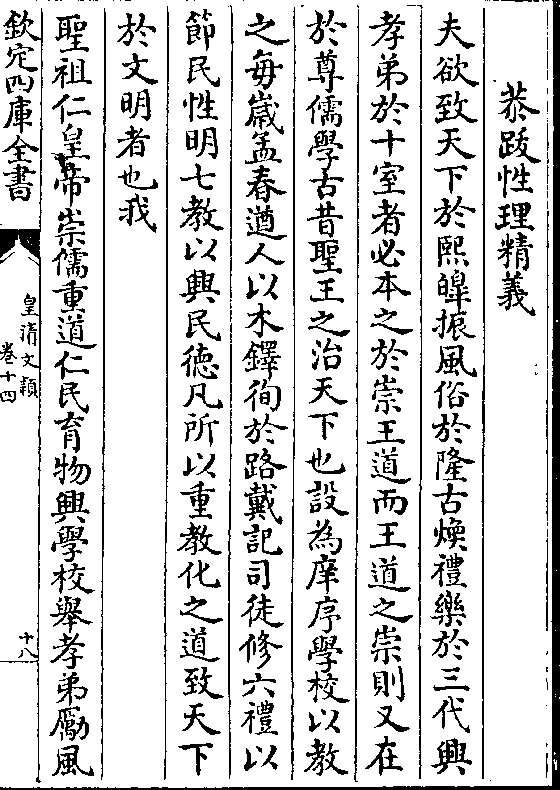 恭跋性理精義
夫欲致天下於熙皡振風俗於隆古煥禮樂於三代興
孝弟於十室者必本之於崇王道而王道之崇則又在
於尊儒學古昔聖王之治天下也設為庠序學校以教
之每嵗孟春遒人以木鐸徇於路戴記司徒修六禮以
節民性明七教以興民徳凡所以重教化之道致天下
於文明者也我
聖祖仁皇帝崇儒重道仁民育物興學校舉孝弟勵風
欽定四庫全書
皇清文穎
卷十四
十八